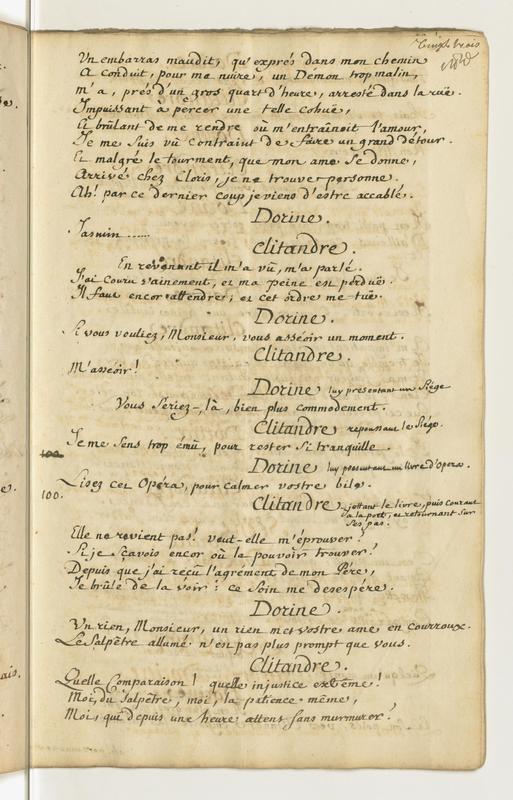 Vingt-trois
Un embarras maudit, qu'exprés dans mon chemin
A conduit, pour me nuire, un Démon trop malin,
m'a, prés d'un gros quart d'heure, arresté dans la ruë.
Impuissant à percer une telle cohuë,
Et brûlant de me rendre où m'entraînoit l'amour,
Je me suis vû contraint de faire un grand détour.
Et malgré le tourment, que mon ame se donne,
Arrivé chez Cloris, je ne trouve personne.
Ah! par ce dernier coup je viens d'estre accablé.
Dorine.
Jasmin ......
Clitandre.
En revenant il m'a vû, m'a parlé.
J'ai couru vainement, et ma peine est perduë.
Il faut encor attendre; et cet ordre me tuë.
Dorine.
Si vous vouliez, Monsieur, vous asséoir un moment.
Clitandre.
M'asséoir!
Dorine luy présentant un Siége
Vous seriez-là, bien plus commodement.
Clitandre repoussant le Siége.
Je me sens trop émû, pour rester si tranquille.
100
Dorine luy présentant un livre d'opera.
Lisez cet Opéra, pour calmer vostre bile.
100.
Clitandre jettant le livre, puis courant
à la porte, et retournant sur
ses pas.
Elle ne revient pas! veut-elle m'éprouver?
Si je sçavois encor où la pouvoir trouver!
Depuis que j'ai reçû l'agrément de mon Pére,
Je brûle de la voir: ce soin me desespére.
Dorine.
Un rien, Monsieur, un rien met vostre ame en courroux.
Le Salpêtre allumé n'est pas plus prompt que vous.
Clitandre.
Quelle Comparaison! quelle injustice extrême!
Moi, du Salpêtre, moi, la patience même,
Moi, qui depuis une heure attens sans murmurer!